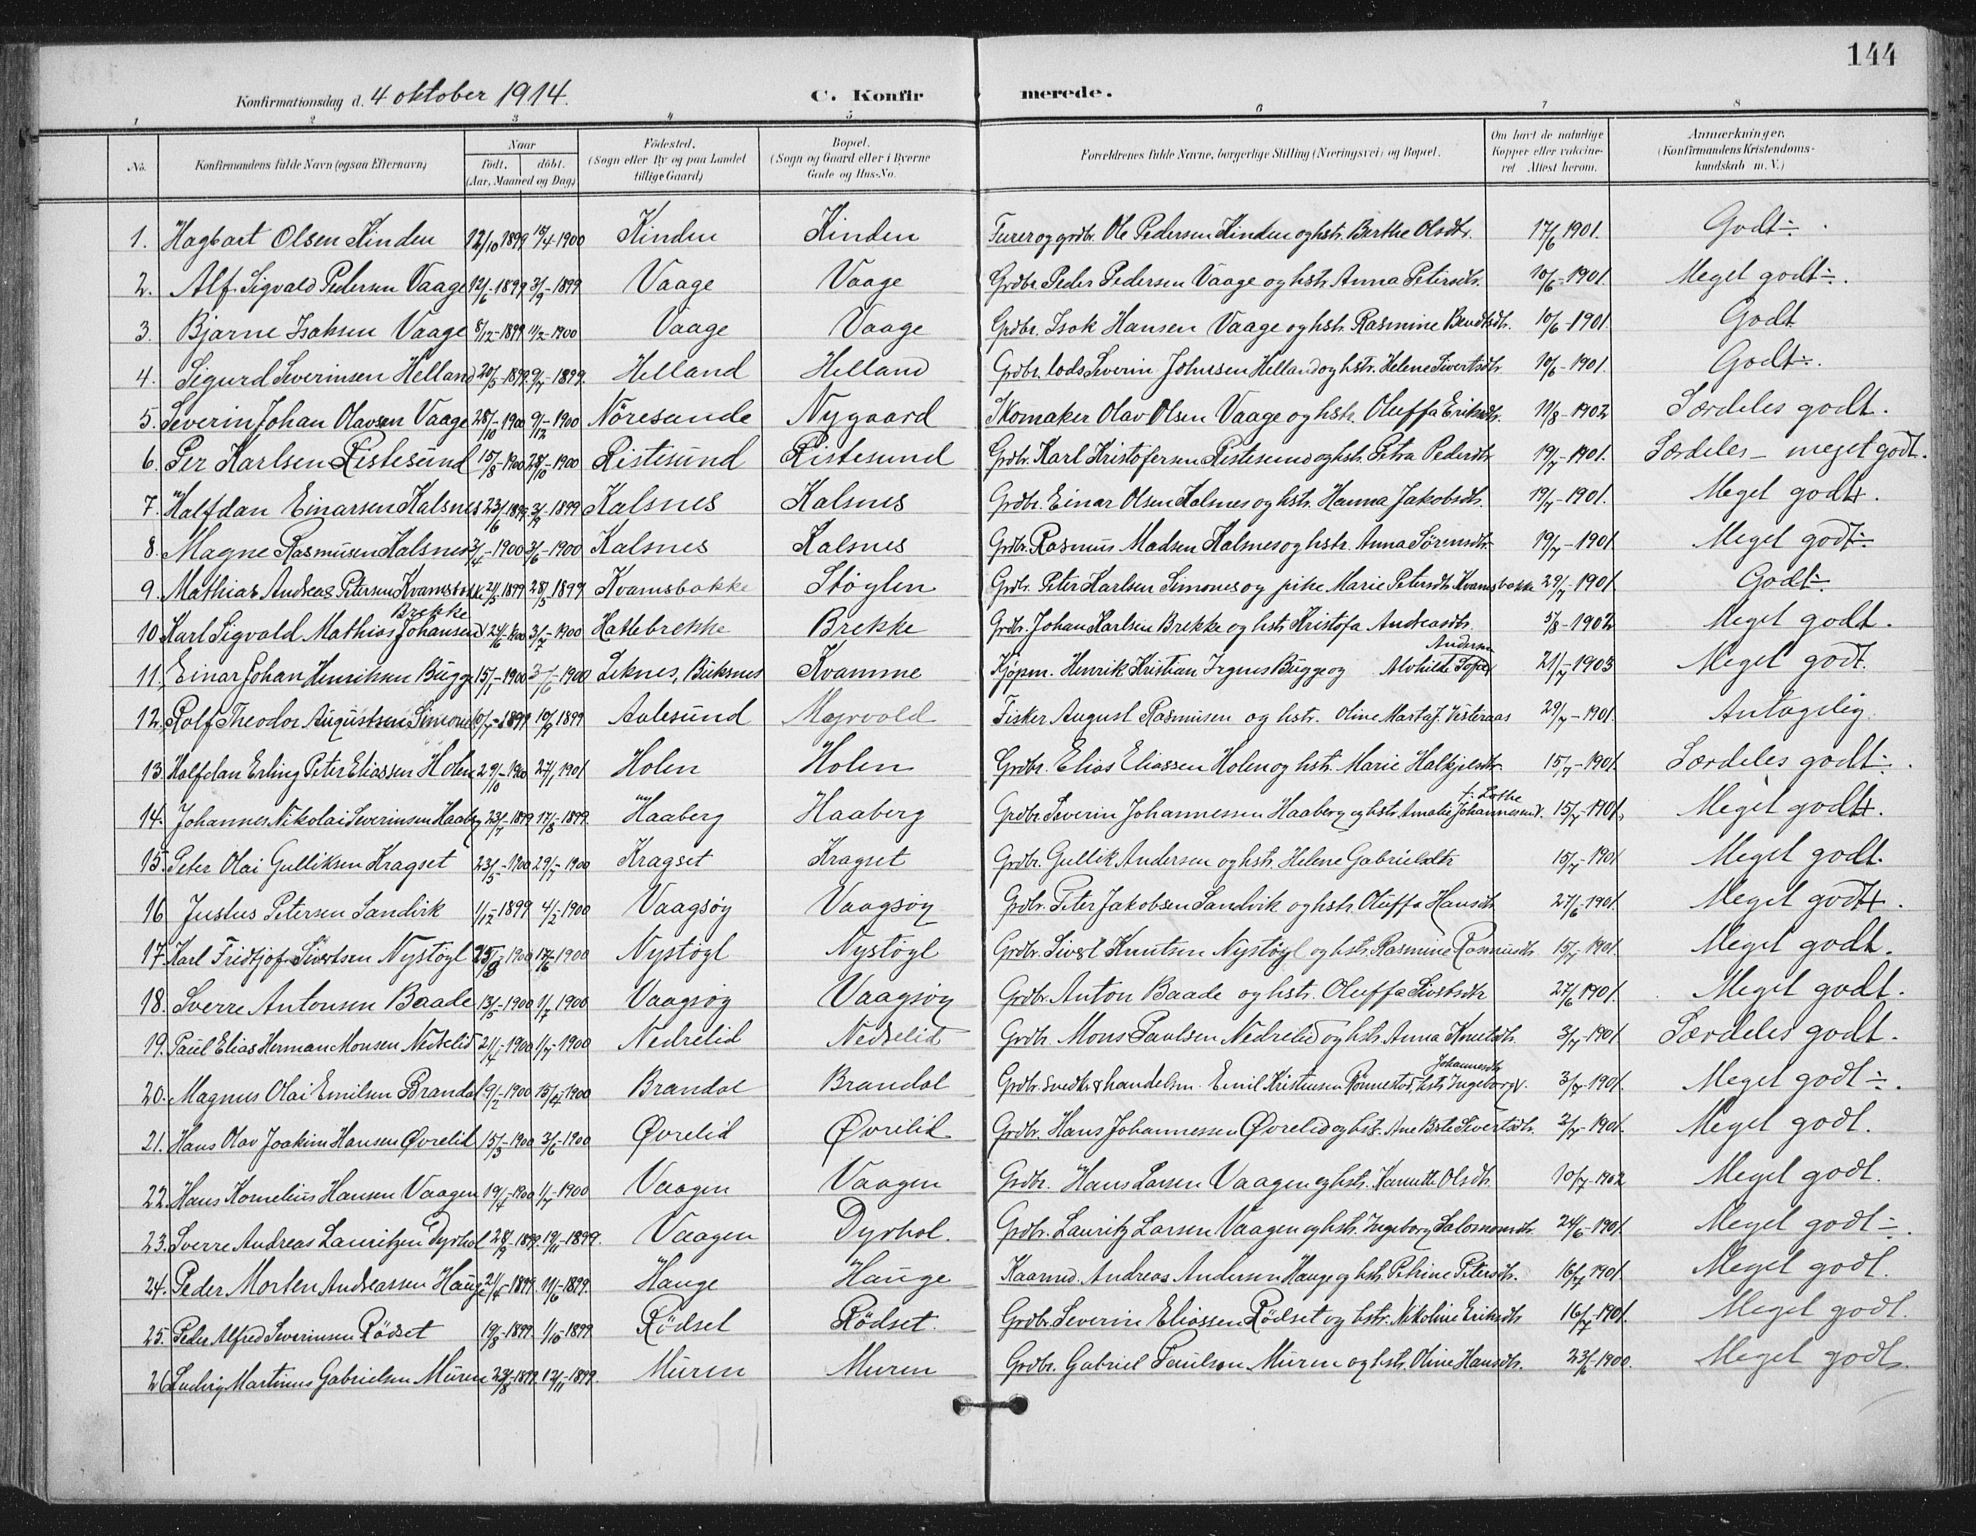 144
Konfirmationsdag d. 4 oktober 1914. C. Konfirmerede.
1 2 3 4 5 6 7 8
No. Konfirmandens fulde Navn (ogsaa Efternavn) Naar Födt. döbt. (Aar, Maaned og Dag) Födested. (Sogn eller By og paa Landet tillige Gaard) Bopæl. (Sogn og Gaard eller i Byerne Gade og Hus-No. Forældrenes fulde Navne, borgerlige Stilling (Næringsvei) og Bopæl. Om havt de naturlige Kopper eller vakcineret Attest herom. Anmærkninger. (Konfirmandens Kristendomskundskab m. V.)
1. Hagbart Olsen Kinden 12/10 1899 15/4 1900 Kinden Kinden Furer og grdbr. Ole Pedersen Kinden og hstr. Berthe Olsdtr. 17/6 1901. Godt ÷.
2. Alf Sigvald Pedersen Vaage 12/6-1899 3/9-1899 Vaage Vaage Grdbr. Peder Pedersen Vaage og hstr. Anna Petersdtr. 10/6-1901. Meget godt ÷.
3. Bjarne Isaksen Vaage 8/12-1899 11/2-1900 Vaage Vaage Grdbr. Isak Hansen Vaage og hstr. Rasmine Bendtsdtr. 10/6-1901. Godt
4. Sigurd Severinsen Helland 20/5-1899. 9/7-1899. Helland Helland Grdbr. lods Severin Johnsen Helland og hstr. Helene Sivertsdtr. 10/6-1901. Godt ÷.
5. Severin Johan Olavsen Vaage 28/10-1900 9/12-1900 Nöresunde Nygaard Skomaker Olav Olsen Vaage og hstr. Oluffa Eriksdtr. 11/8-1902 Særdeles godt.
6. Per Karlsen Ristesund 15/8-1900 28/10-1900 Ristesund Ristesund Grdbr. Karl Kristofersen Ristesund og hstr. Petra Pedersdtr. 19/7-1901. Særdeles - meget godt.
7. Halfdan Einarsen Kalsnes 23/6-1899 3/9-1899 Kalsnes Kalsnes Grdbr. Einar Olsen Kalsnes og hstr. Hanna Jakobsdtr. 19/7-1901. Meget godt+.
8. Magne Rasmusen Kalsnes 3/4-1900 3/6-1900 Kalsnes Kalsnes Grdbr. Rasmus Madsen Kalsnes og hstr. Anna Sørensdtr. 19/7-1901. Meget godt ÷.
9. Mathias Andreas Petersen Kvamsbakke 2/5 1899 28/5-1899 Kvamsbakke Støylen Grdbr. Peter Karlsen Simones og pike Marie Petersdtr. Kvamsbakke 29/7-1901. Godt ÷.
10. Karl Sigvald Mathias Johansen Brekke 24/6-1900 3/7-1900 Hattebrekke Brekke Grdbr. Johan Karlsen Brekke og hstr. Kristofa Andreasdtr. 5/8-1902 Meget godt.
11. Einar Johan Henriksen Bugge 15/1-1900 3/6-1900 Leknes, Buksnes Kvamme Kjøpm. Henrik Kristian Bugge og Alvhilde Andersen 21/7-1903 Meget godt.
12. Rolf Theodor Augustsen 1899 10/9 1899 Aalesund Myrvold Fisker August Rasmusen og hstr. Oline Marta J. Vesteraas 29/7-1901. Antagelig
13. Halfdan Erling Peter Eliassen Holen 29/10-1900 27/1 1901 Holen Holen Grdbr. Elias Eliassen Holen og hstr. Marie Halkjelsdtr. 15/7-1901. Særdeles godt ÷.
14. Johannes Nikolai Severinsen Haaberg 23/7-1899 17/8-1899. Haaberg Haaberg Grdbr. Severin Johannessen Haaberg og hstr. Amalie Johannesend. f. Lothe 15/7-1901. Meget godt+.
15. Peter Olai Gulliksen Kragset 23/5-1900 29/7-1900 Kragset Kragset Grdbr. Gullik Andersen og hstr. Helene Gabrielsdtr 15/7-1901 Meget godt.
16 Justus Petersen Sandvik 1/12-1899 4/2-1900 Vaagsøy Vaagsøy Grdbr. Peter Jakobsen Sandvik og hstr. Oluffa Hansdtr 27/6-1901. Meget godt+.
17. Karl Fridtjof Sivertsen Nystøyl 1900 17/6-1900 Nystøyl Nystøyl Grdbr. Sivert Knutsen Nystøyl og hstr. Rasmine Rasmusdtr. 15/7-1901. Meget godt.
18. Sverre Antonsen Baade 13/5-1900 1/7-1900 Vaagsøy Vaagsøy Grdbr. Anton Baade og hstr. Oluffa Sivertsdtr 27/6 1901. Meget godt.
19. Paul Elias Herman Monsen Nedrelid 21/4-1900 1/7-1900 Nedrelid Nedrelid Grdbr. Mons Paulsen Nedrelid og hstr. Anna Knutsdtr. 3/7-1901 Særdeles godt.
20. Magnus Olai Emilsen Brandal 9/2-1900 15/4-1900 Brandal Brandal Grdbr. snedk. & handelsm. Emil Kristiansen Rønnestad, hstr. Ingeborg Johannesdtr. 3/7-1901. Meget godt ÷.
21. Hans Olav Joakim Hansen Øvrelid 15/3-1900 3/6-1900 Øvrelid Øvrelid Grdbr. Hans Johannessen Øvrelid og hstr. Ane Brte Sivertsdtr. 2/7-1901. Meget godt.
22. Hans Kornelius Hansen Vaagen 19/4-1900 1/7-1900 Vaagen Vaagen Grdbr. Hans Larsen Vaagen og hstr. Olsdtr. 10/7-1902 Meget godt.
23. Sverre Andreas Lauritzen Dyrhol 28/9-1899. 19/11-1899. Vaagen Dyrhol. Grdbr. Lauritz Larsen Vaagen og hstr. Ingeborg Salomonsdtr. 24/6-1901. Meget godt ÷.
24. Peder Morten Andreassen Hauge 21/4-1899. 11/6-1899. Hauge Hauge Kaarmd. Andreas Andersen Hauge og hstr. Petrine Petersdtr. 16/7 1901. Meget godt.
25. Peder Alfred Severinsen Rödset 19/8-1899. 1/10-1899. Rödset Rödset. Grdbr. Severin Eliassen Rödset og hstr. Nikoline Eriksdtr. 16/7-1901. Meget godt.
26. Ludvig Martinus Gabrielsen Muren 23/8-1899. 12/11-1899. Muren Muren Grdbr. Gabriel Paulsen Muren og hstr. Oline Hansdtr. 23/6-1900. Meget godt.